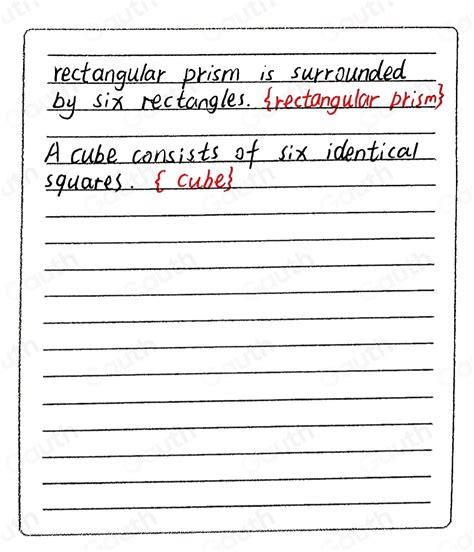 rectangular prism is surrounded
by six rectangles. {rectangular prism}
A cube consists of six identical
squares. { cube}